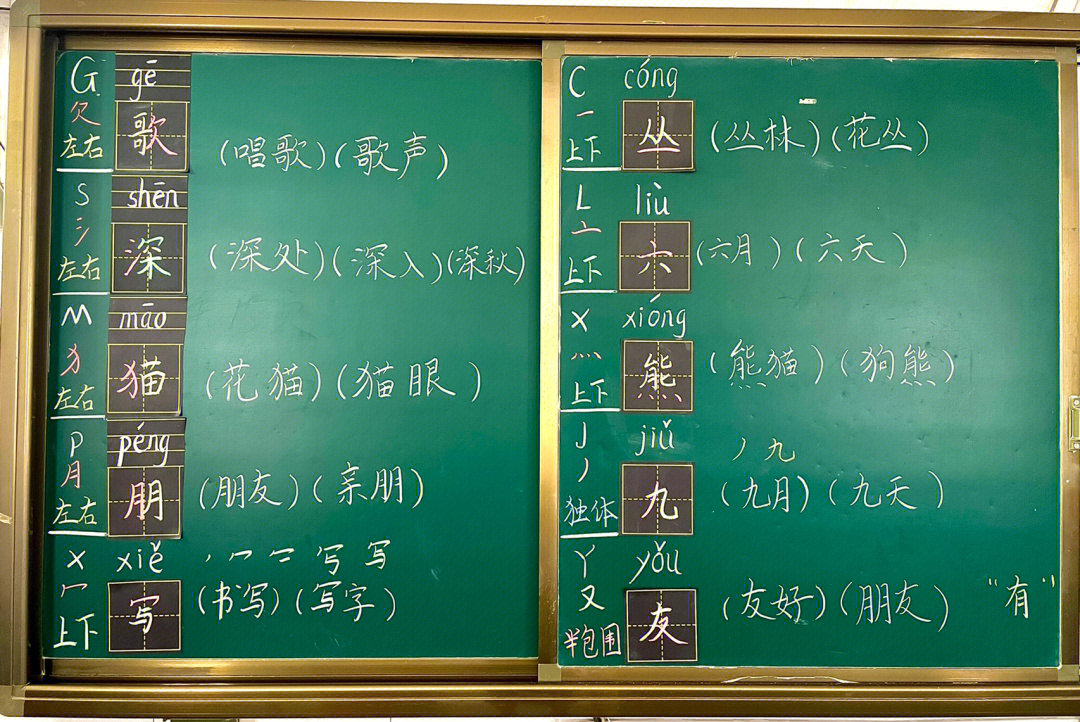 G gē
欠
左右 歌 (唱歌)(歌声)
S shēn
氵
左右 深 (深处)(深入)(深秋)
M māo
犭
左右 猫 (花猫)(猫眼)
P péng
月
左右 朋 (朋友)(亲朋)
X xiě
冖
上下 写 (书写)(写字)
C cóng
一
上下 丛 (丛林)(花丛)
L liù
亠
上下 六 (六月)(六天)
X xióng
灬
上下 熊 (熊猫)(狗熊)
J jiǔ 丿 九
丿
独体 九 (九月)(九天)
Y yǒu
又
半包围 友 (友好)(朋友) "有"